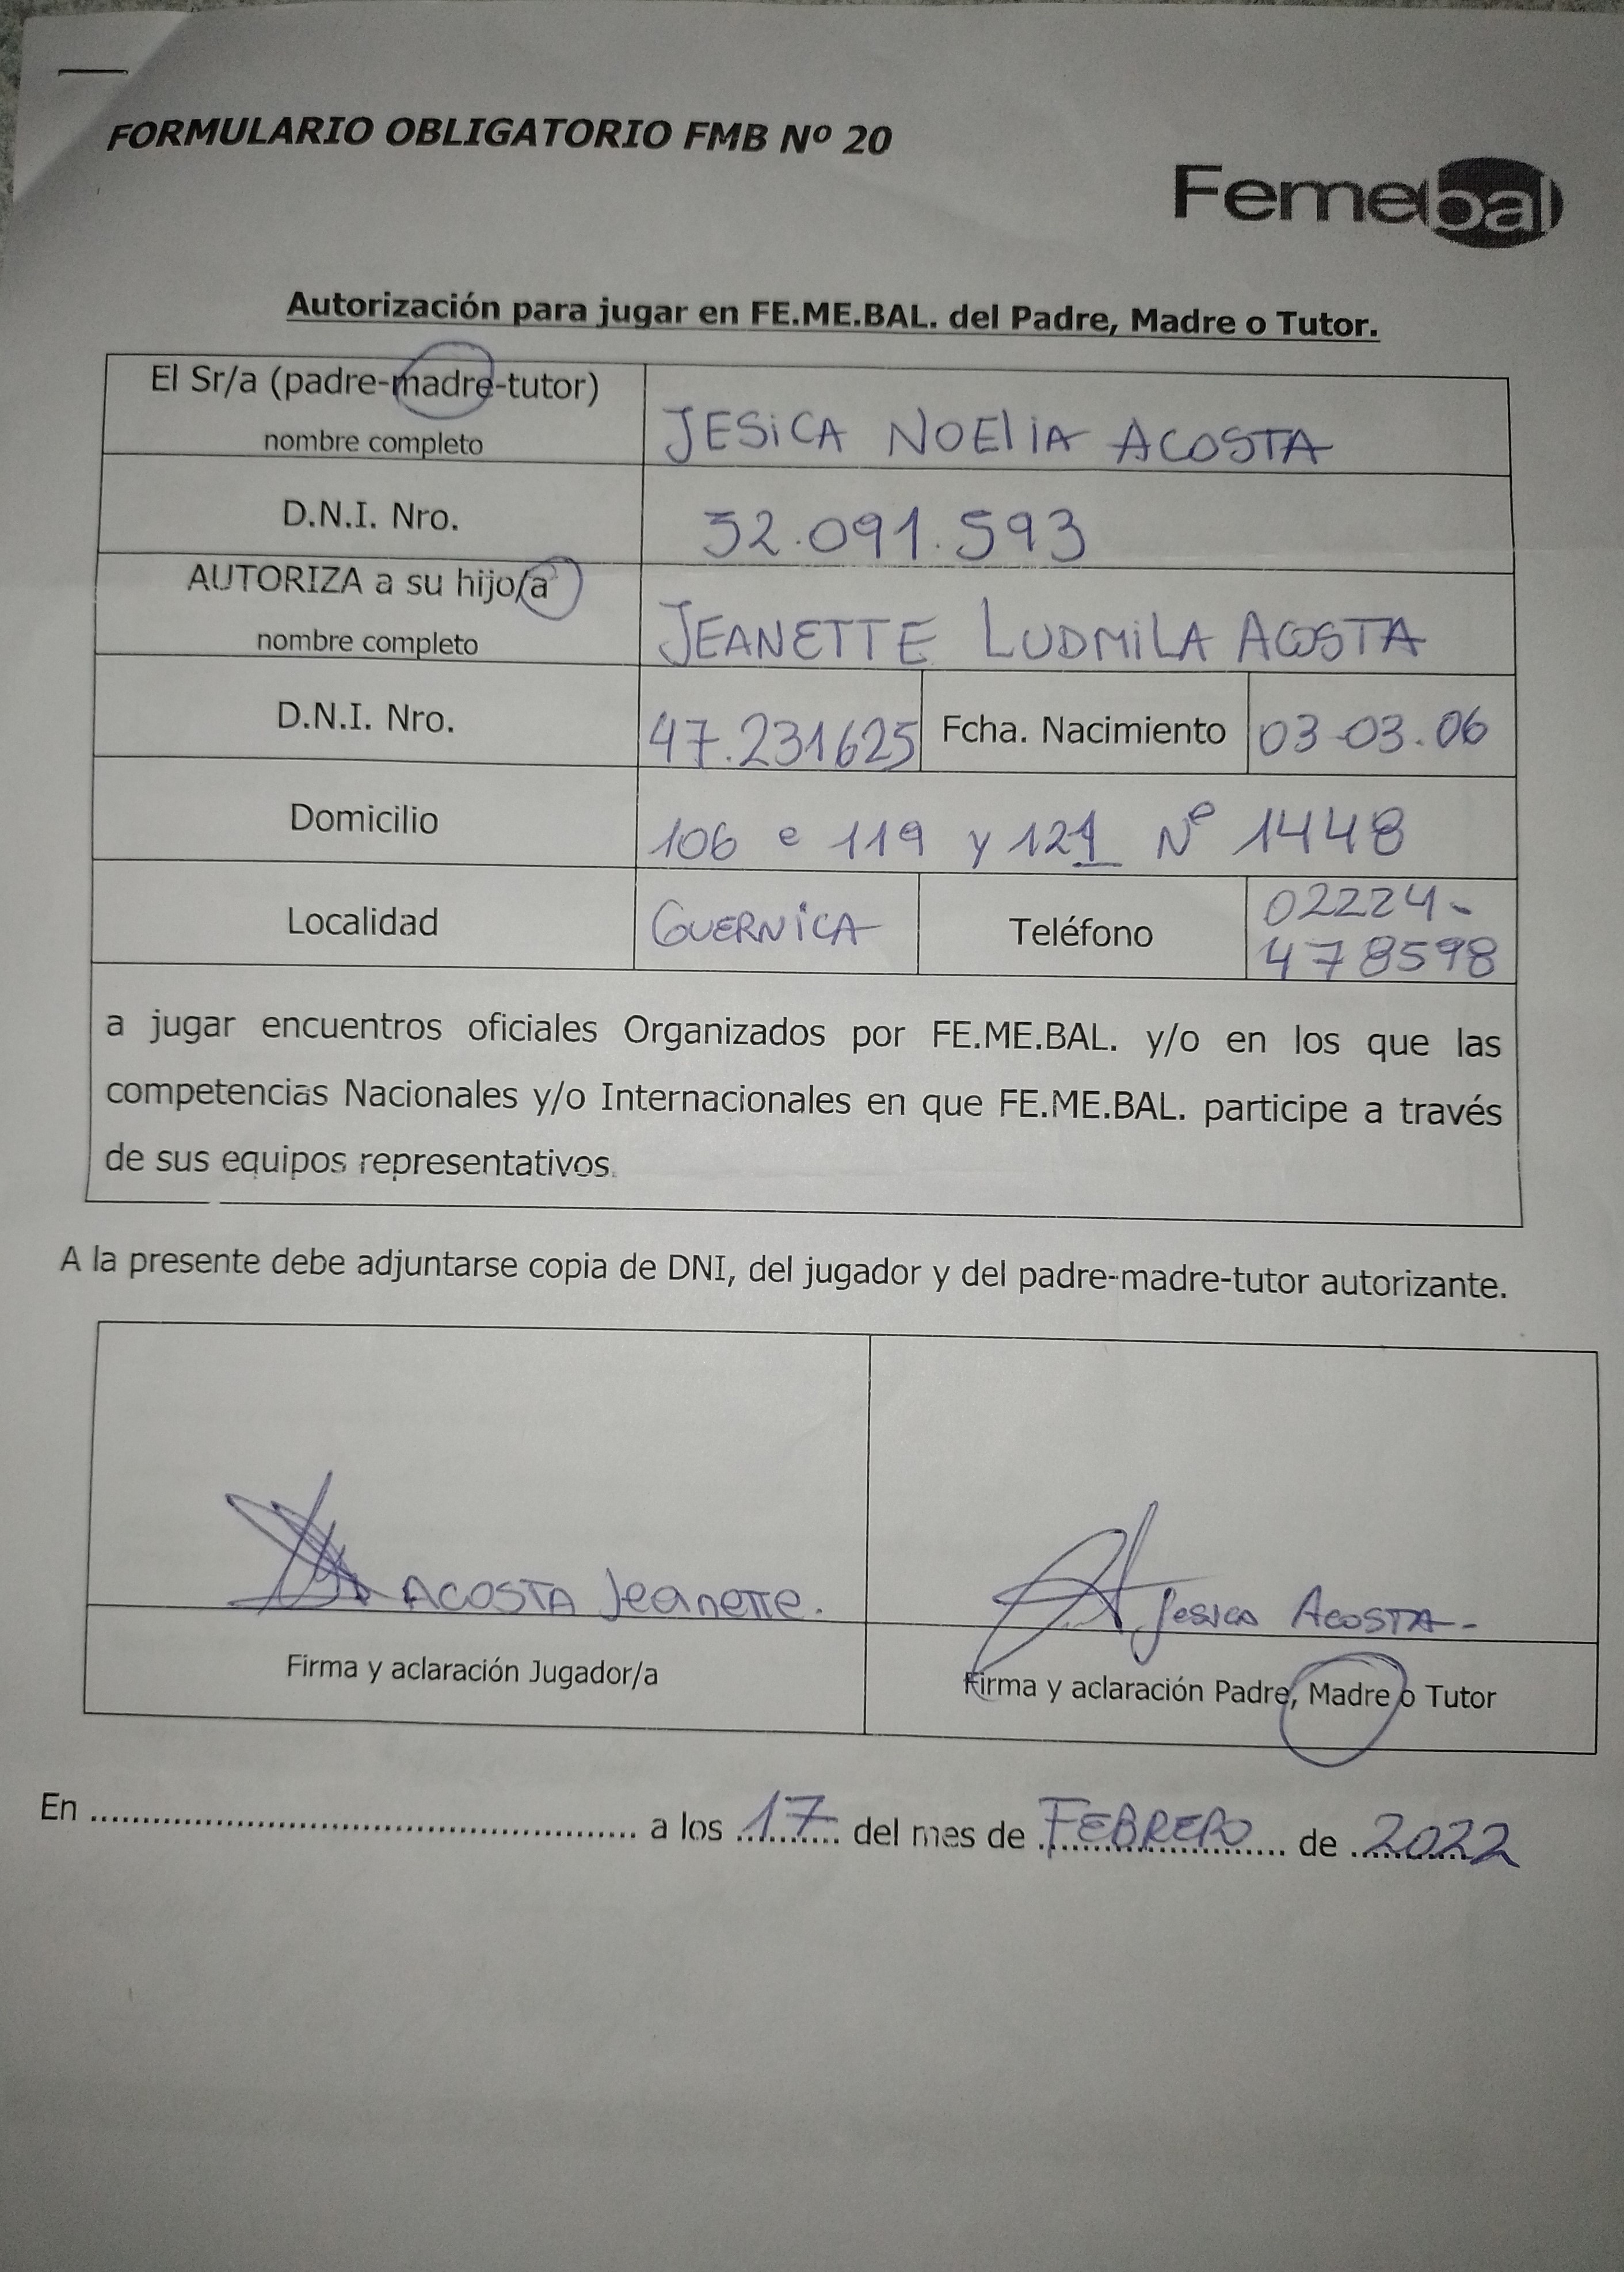 FORMULARIO OBLIGATORIO FMB Nº 20
Femebal
Autorización para jugar en FE.ME.BAL. del Padre, Madre o Tutor.
El Sr/a (padre-madre-tutor)
nombre completo
JESiCA NOElIA ACOSTA
D.N.I. Nro.
32.091.593
AUTORIZA a su hijo/a
nombre completo
JEANETTE LUDMiLA ACOSTA
D.N.I. Nro.
47.231625
Fcha. Nacimiento
03-03.06
Domicilio
106 e 119 y 121 Nº 1448
Localidad
GUERNiCA
Teléfono
02224-
478598
a jugar encuentros oficiales Organizados por FE.ME.BAL. y/o en los que las
competencias Nacionales y/o Internacionales en que FE.ME.BAL. participe a través
de sus equipos representativos.
A la presente debe adjuntarse copia de DNI, del jugador y del padre-madre-tutor autorizante.
ACOSTA Jeanette.
Jesica ACOSTA-
Firma y aclaración Jugador/a
Firma y aclaración Padre, Madre o Tutor
En ..................................................... a los 17 del mes de FEBRERO de 2022